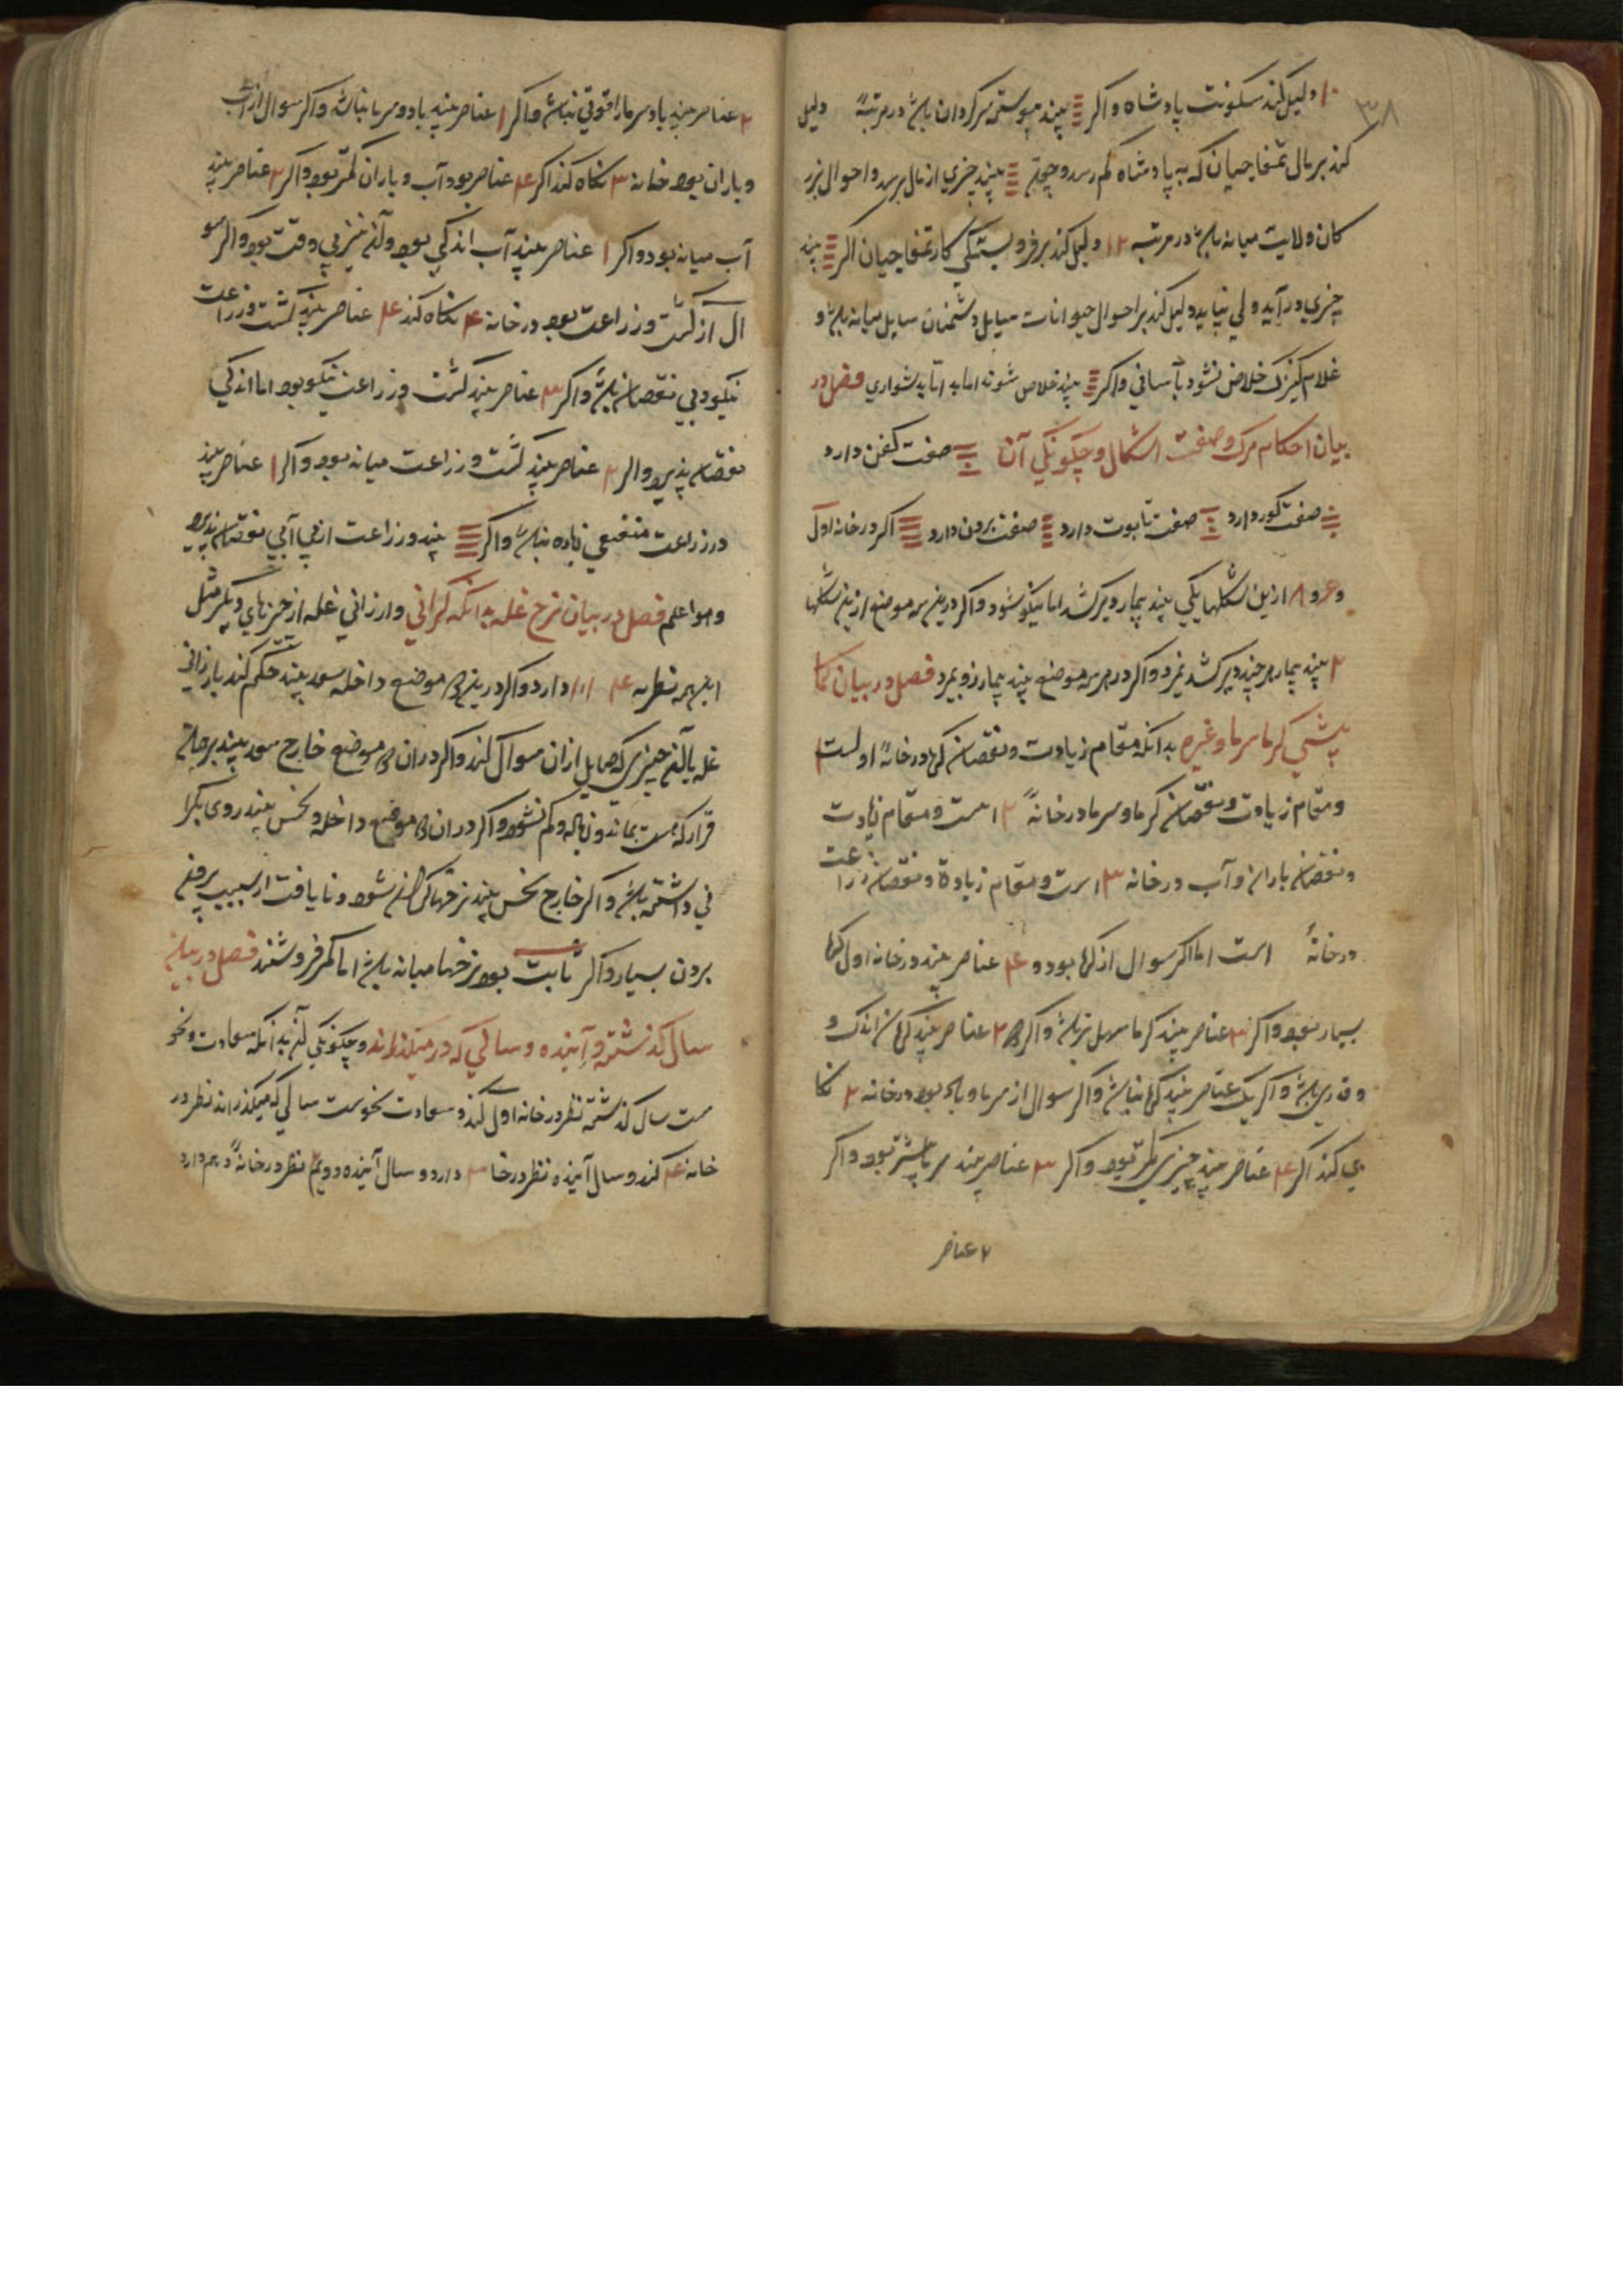 ۳۸
۱۰ دلیل کند سکونت پادشاه و اکر بیند پیوسته سرکردان باشد در مرتبهٔ دلیل
کند بر مال تمغاجیان که به پادشاه کم رسد و چون بیند چیزي از مال برسد و احوال بزر
کان ولایت میانه باشد در مرتبه ۱۲ دلیل کند بر فروبستکي کار تمغاجیان اکر بیند
چیزي در آید ولي نپاید دلیل کند بر احوال حیوانات سایل و دشمنان سایل میانه باشد و
غلام کنیزک خلاص نشود بآساني و اکر بیند خلاص شوند اما به دشواري فصل در
بیان احکام مرک و صفت اشکال و چکونکي آن صفت کفن دارد
صفت کور دارد صفت تابوت دارد صفت برون دارد اکر در خانه اول
و ۶ و ۸ ازین شکلها یکي بیند بیمار دیر کشد اما نیکو شود و اکر درین سه موضع ازین شکلها
۲ بیند بیمار هر چند دیر کشد بمیرد و اکر در هر سه موضع بیند بیمار زود بمیرد فصل در بیان کما
بیشي کرما سرما و غیره بدانکه مقام زیادت و نقصان کرما در خانهٔ اولست
و مقام زیادت و نقصان کرما و سرما در خانهٔ ۲ است و مقام زیادت
و نقصان باران و آب در خانه ۳ است و مقام زیادة و نقصان زراعت
در خانهٔ است اما اکر سوال از کرما بود و ۴ عناصر بیند در خانه اول کرما
بسیار بود و اکر ۳ عناصر بیند کرما سهل تر باشد و اکر ۲ عناصر بیند کرما اندک و
و قدري باشد و اکر یک عناصر بیند کرما نباشد و اکر سوال از سرما و باد بود در خانه ۲ نکا
ه کند اکر ۴ عناصر بیند چیزي کمتر بود و اکر ۳ عناصر بیند سرما بیشتر بود و اکر
۲ عناصر
۲ عناصر بیند باد سرما را قوتي نباشد و اکر ۱ عناصر بیند باد و سرما نباشد و اکر سوال از آب
و باران بود خانه ۳ نکاه کند اکر ۴ عناصر بود آب و باران کمتر بود و اکر ۲ عناصر بیند
آب میانه بود و اکر ۱ عناصر بیند آب اندکي بود و آن نیز بي وقت بود و اکر سو
ال از کشت و زراعت بود در خانه ۴ نکاه کند ۴ عناصر بیند کشت و زراعت
نیکو و بي نقصان باشد و اکر ۳ عناصر بیند کشت و زراعت نیکو بود اما اندکي
نقصان پذیرد و اکر ۲ عناصر بیند کشت و زراعت میانه بود و اکر ۱ عناصر بیند
در زراعت منفعتي زیاده نباشد و اکر بیند در زراعت از بي آبي نقصان پذیرد
و هو اعلم فصل در بیان نرخ غله بدانکه کراني و ارزاني غله از چیزهاي دیکر مثل
اینهمه نظر به ۴ ۱۰۱ دارد و اکر درین موضع داخل سعد بیند حکم کند بارزاني
غله یا آن چیزي که سایل ازان سوال کند و اکر دران موضع خارج سعد بیند بر جاي
قرار که هست بماند و زیاده و کم نشود و اکر دران موضع داخل و نحس بیند روی بکرا
ني داشته باشد و اکر خارج نحس بیند نرخها کران شود و نایافت از سبب
برون بسیار و اکر ثابت بود نرخها میانه باشد اما کمتر فروشند فصل در بیان
سال کذشته و آینده و سالي که در میکذراند و چکونکي آن بدانکه سعادت و نحو
ست سال کذشته نظر در خانه اول کند و سعادت نحوست سالي که میکذراند نظر در
خانه ۴ کند و سال آینده نظر در خانه دارد و سال آینده دویم نظر در خانهٔ دهم دارد